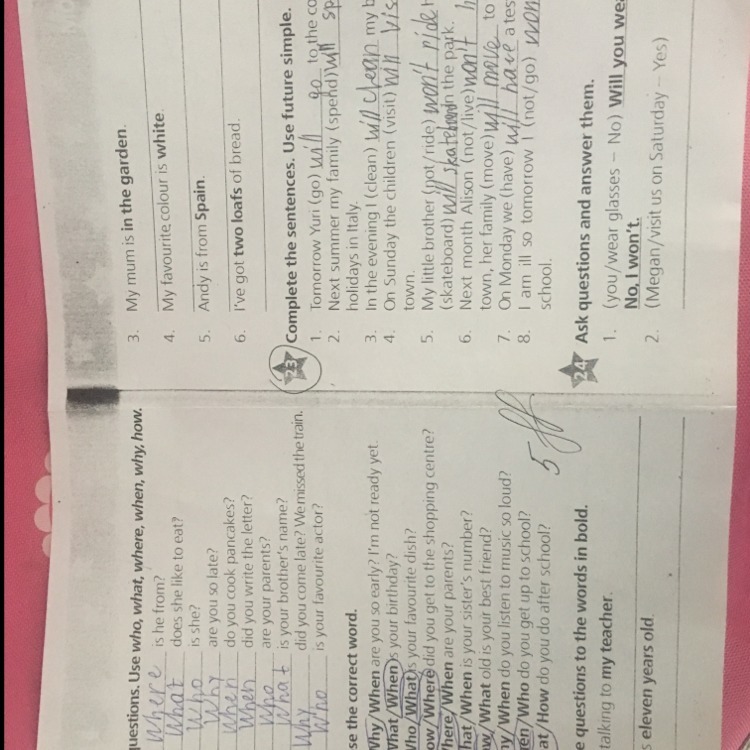 questions. Use who, what, where, when, why, how.
Where is he from?
What does she like to eat?
Who is she?
Why are you so late?
When do you cook pancakes?
When did you write the letter?
Who are your parents?
What is your brother's name?
Why did you come late? We missed the train.
Who is your favourite actor?
se the correct word.
Why/When are you so early? I'm not ready yet.
What/When is your birthday?
Who/What is your favourite dish?
ow/Where did you get to the shopping centre?
here/When are your parents?
hat/When is your sister's number?
ow/What old is your best friend?
hy/When do you listen to music so loud?
en/Who do you get up to school?
at/How do you do after school?
5
e questions to the words in bold.
talking to my teacher.
s eleven years old.
3. My mum is in the garden.
4. My favourite colour is white.
5. Andy is from Spain.
6. I've got two loafs of bread.
23 Complete the sentences. Use future simple.
1. Tomorrow Yuri (go) will go to the co
2. Next summer my family (spend) will sp
holidays in Italy.
3. In the evening I (clean) will clean my b
4. On Sunday the children (visit) will vis
town.
5. My little brother (not/ride) won't ride
(skateboard) will skateboard in the park.
6. Next month Alison (not/live) won't
town, her family (move) will move to
7. On Monday we (have) will have a tes
8. I am ill so tomorrow I (not/go) won
school.
24 Ask questions and answer them.
1. (you/wear glasses – No) Will you wea
No, I won't.
2. (Megan/visit us on Saturday – Yes)